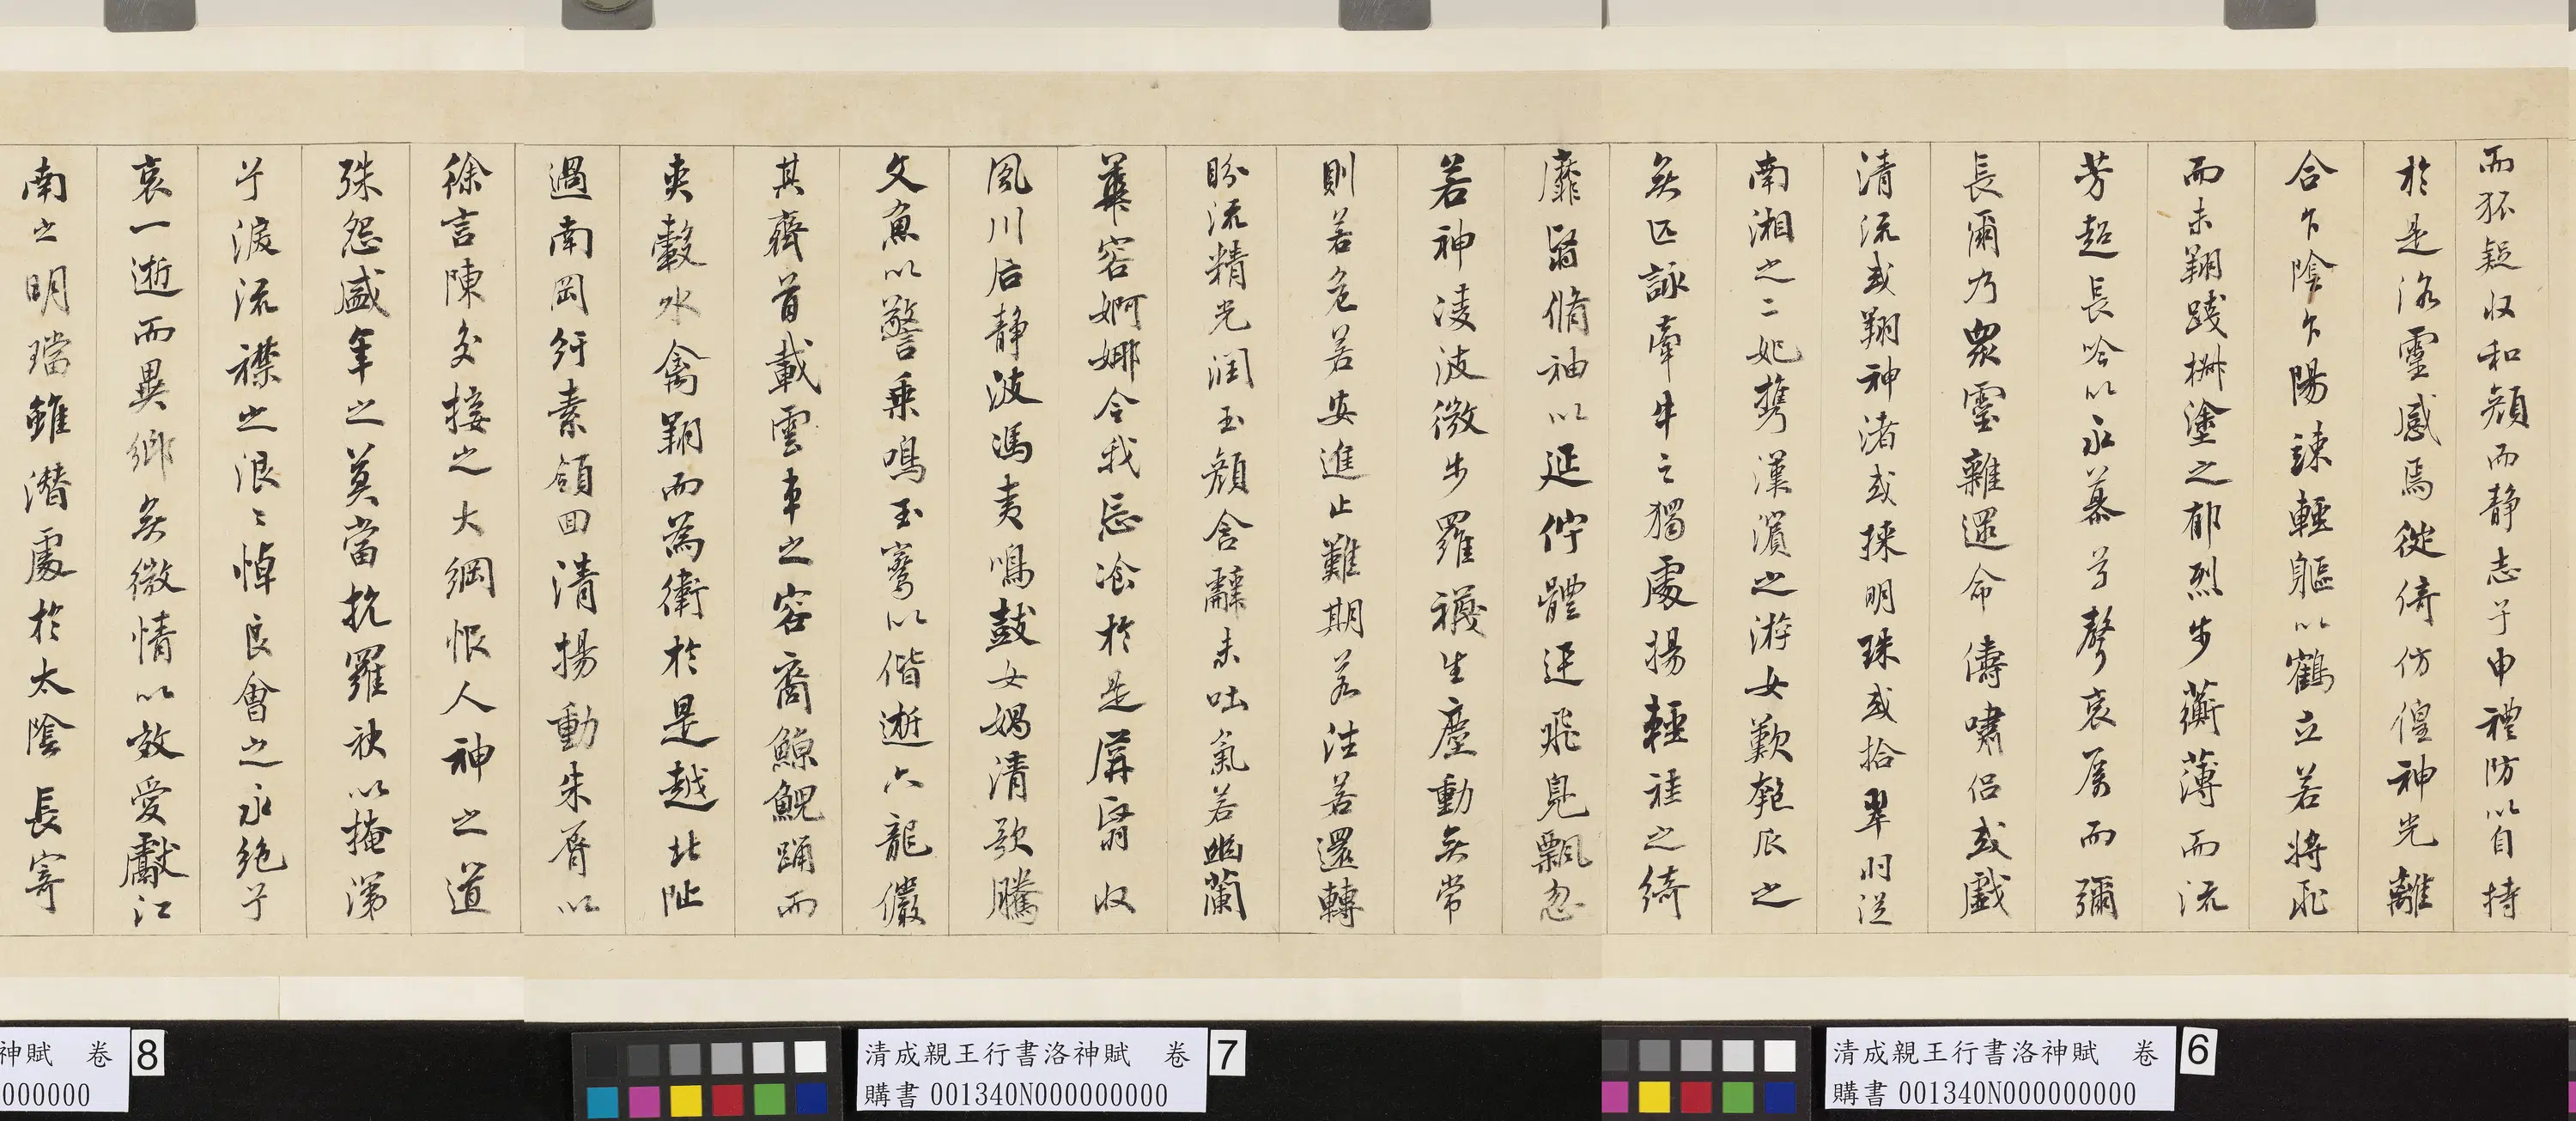 而狐疑収和顔而静志兮申禮防以自持
於是洛靈感焉徙倚彷徨神光離
合乍陰乍陽竦輕軀以鶴立若將飛
而未翔踐椒塗之郁烈步蘅薄而流
芳超長吟以永慕兮聲哀厲而彌
長爾乃衆靈雜遝命儔嘯侣或戲
清流或翔神渚或採明珠或拾翠羽從
南湘之二妃攜漢濱之游女歎匏瓜之
無匹詠牽牛之獨處揚輕袿之綺
靡翳脩袖以延佇體迅飛鳧飄忽
若神淩波微步羅襪生塵動無常
則若危若安進止難期若往若還轉
盼流精光潤玉顔含辭未吐氣若幽蘭
華容婀娜令我忘飡於是屏翳収
風川后静波馮夷鳴鼓女媧清歌騰
文魚以警乘鳴玉鸞以偕逝六龍儼
其齊首載雲車之容裔鯨鯢踊而
夾轂水禽翔而為衛於是越北沚
過南岡紆素領回清揚動朱脣以
徐言陳交接之大綱恨人神之道
殊怨盛年之莫當抗羅袂以掩涕
兮淚流襟之浪〻悼良會之永絶兮
哀一逝而異鄉無微情以效愛獻江
南之明璫雖潛處於太陰長寄
神賦 卷
8
000000
清成親王行書洛神賦 卷
7
購書 001340N000000000
清成親王行書洛神賦 卷
6
購書 001340N000000000